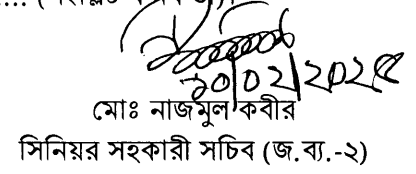 ১০/০২/২০২৫
মোঃ নাজমুল কবীর
সিনিয়র সহকারী সচিব (জ.ব্য.-২)